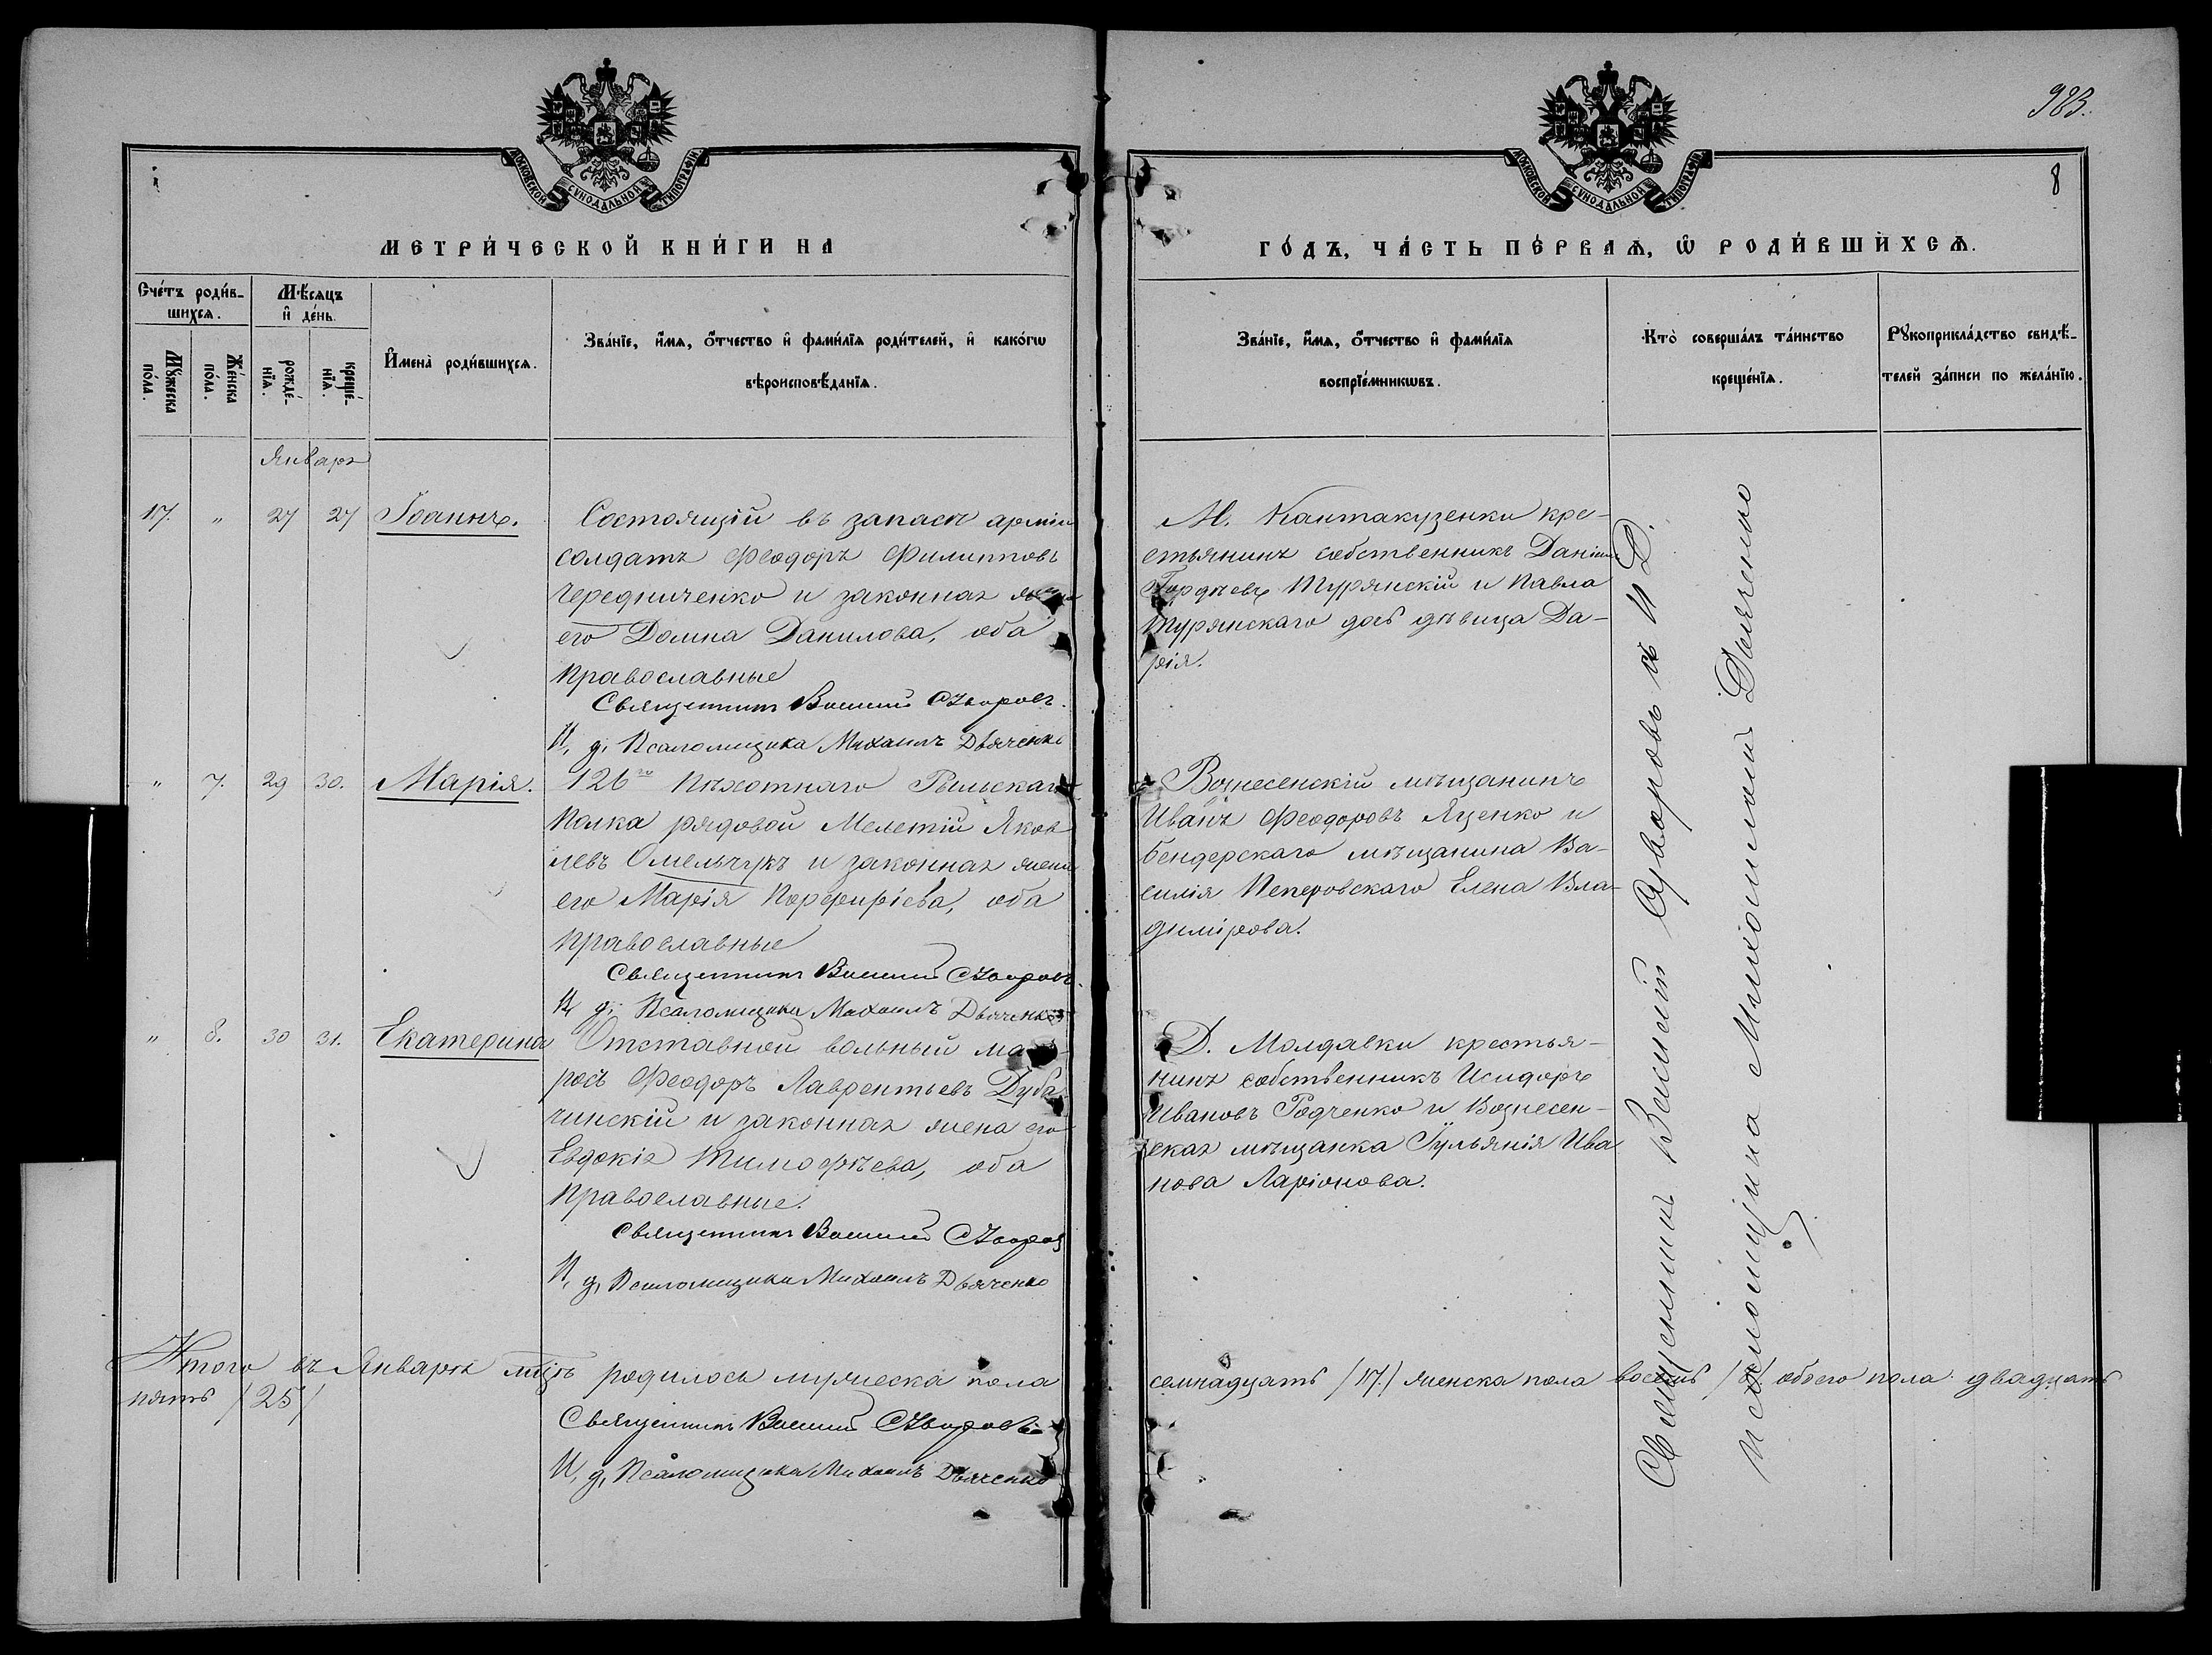 983.
8
МОСКОВСКОЙ СѴНОДАЛЬНОЙ ТИПОГРАФІИ
МОСКОВСКОЙ СѴНОДАЛЬНОЙ ТИПОГРАФІИ
МЕТРИ́ЧЕСКОЙ КНИ́ГИ НА
ГО́ДЪ, ЧА́СТЬ ПЕ́РВАѦ, Ѡ РОДИ́ВШИХСѦ.
Сче́тъ роди́в-
шихсѧ.
Мꙋ́жеска
по́ла.
Же́нска
по́ла.
Мѣ́сяцъ
и де́нь.
рожде́-
нїѧ.
креще́-
нїѧ.
Имена̀ роди́вшихсѧ.
Зва́нїе, и́мѧ, о́тчество и фами́лїѧ роди́телей, и како́гѡ
вѣроисповѣ́данїѧ.
Зва́нїе, и́мѧ, о́тчество и фами́лїѧ
воспрїе́мникѡвъ.
Кто̀ соверша́лъ та́инство
креще́нїѧ.
Рꙋкоприкла́дство свидѣ́-
телей за́писи по жела́нїю.
Январь
17. " 27 27 Іоаннъ.
Состоящій въ запасѣ арміи
солдатъ Ѳеодоръ Филипповъ
Чередниченко и законная жена
его Домна Данилова, оба
православные
Священникъ Василій Суворовъ.
И, д, Псаломщика Михаилъ Дьяченко
М. Кантакузенки кре-
стьянинъ собственникъ Даніилъ
Гордѣевъ Турянскій и Павла
Турянскаго дочь дѣвица Да-
рія.
" 7. 29 30. Марія.
126го Пѣхотнаго Рыльскаго
Полка рядовой Мелетій Яков
левъ Омельчукъ и законная жена
его Марія Порфиріева, оба
православные
Священникъ Василій Суворовъ.
И, д, Псаломщика Михаилъ Дьяченко
Вознесенскій мѣщанинъ
Иванъ Ѳеодоровъ Яценко и
бендерскаго мѣщанина Ва-
силія Пеперовскаго Елена Вла-
димірова.
" 8. 30 31. Екатерина
Отставной вольный мат-
росъ Ѳеодоръ Лаврентьевъ Дуба-
чинскій и законная жена его
Евдокія Тимофѣева, оба
Православные.
Священникъ Василій Суворовъ
И, д, Псаломщика Михаилъ Дьяченко
Д. Молдавки крестья-
нинъ собственникъ Исидоръ
Ивановъ Родченко и Вознесен-
ская мѣщанка Іульянія Ива
нова Ларіонова.
Священникъ Василій Суворовъ съ И Д.
псаломщика Михаиломъ Дьяченко
Итого въ Январѣ мцѣ родилось мужеска пола семнадцать /17./ женска пола восемь /8/ обоего пола двадцать
пять /25/
Священникъ Василій Суворовъ
И, д, Псаломщика Михаилъ Дьяченко